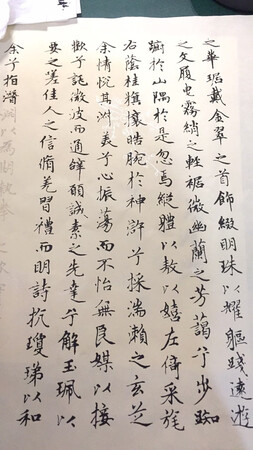 之華琚戴金翠之首飾綴明珠以耀軀踐遠遊
之文履曳霧綃之輕裾微幽蘭之芳藹兮步踟
躕於山隅於是忽焉縱體以敖以嬉左倚采旄
右蔭桂旗攘皓腕於神滸兮採湍瀨之玄芝
余情悅其淑美兮心振蕩而不怡無良媒以接
歡兮託微波而通辭願誠素之先達兮解玉珮以
要之嗟佳人之信脩羌習禮而明詩抗瓊珶以和
余兮指潛